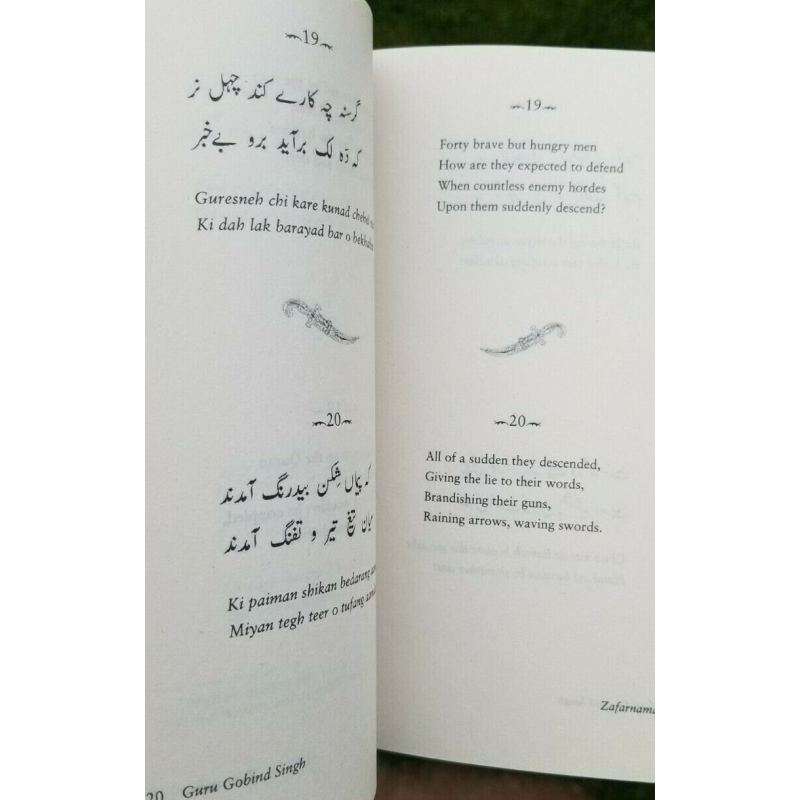 19
گرسنہ چہ کارے کند چہل نر
کہ دَہ لک برآید برو بےخبر
Guresneh chi kare kunad
Ki dah lak barayad bar o
20
کہ پیماں شِکن بیدرنگ آمدند
میان تیغ تیر و تفنگ آمدند
Ki paiman shikan bedarang
Miyan tegh teer o tufang
20 Guru Gobind Singh
19
Forty brave but hungry men
How are they expected to defend
When countless enemy hordes
Upon them suddenly descend?
20
All of a sudden they descended,
Giving the lie to their words,
Brandishing their guns,
Raining arrows, waving swords.
Zafarnama